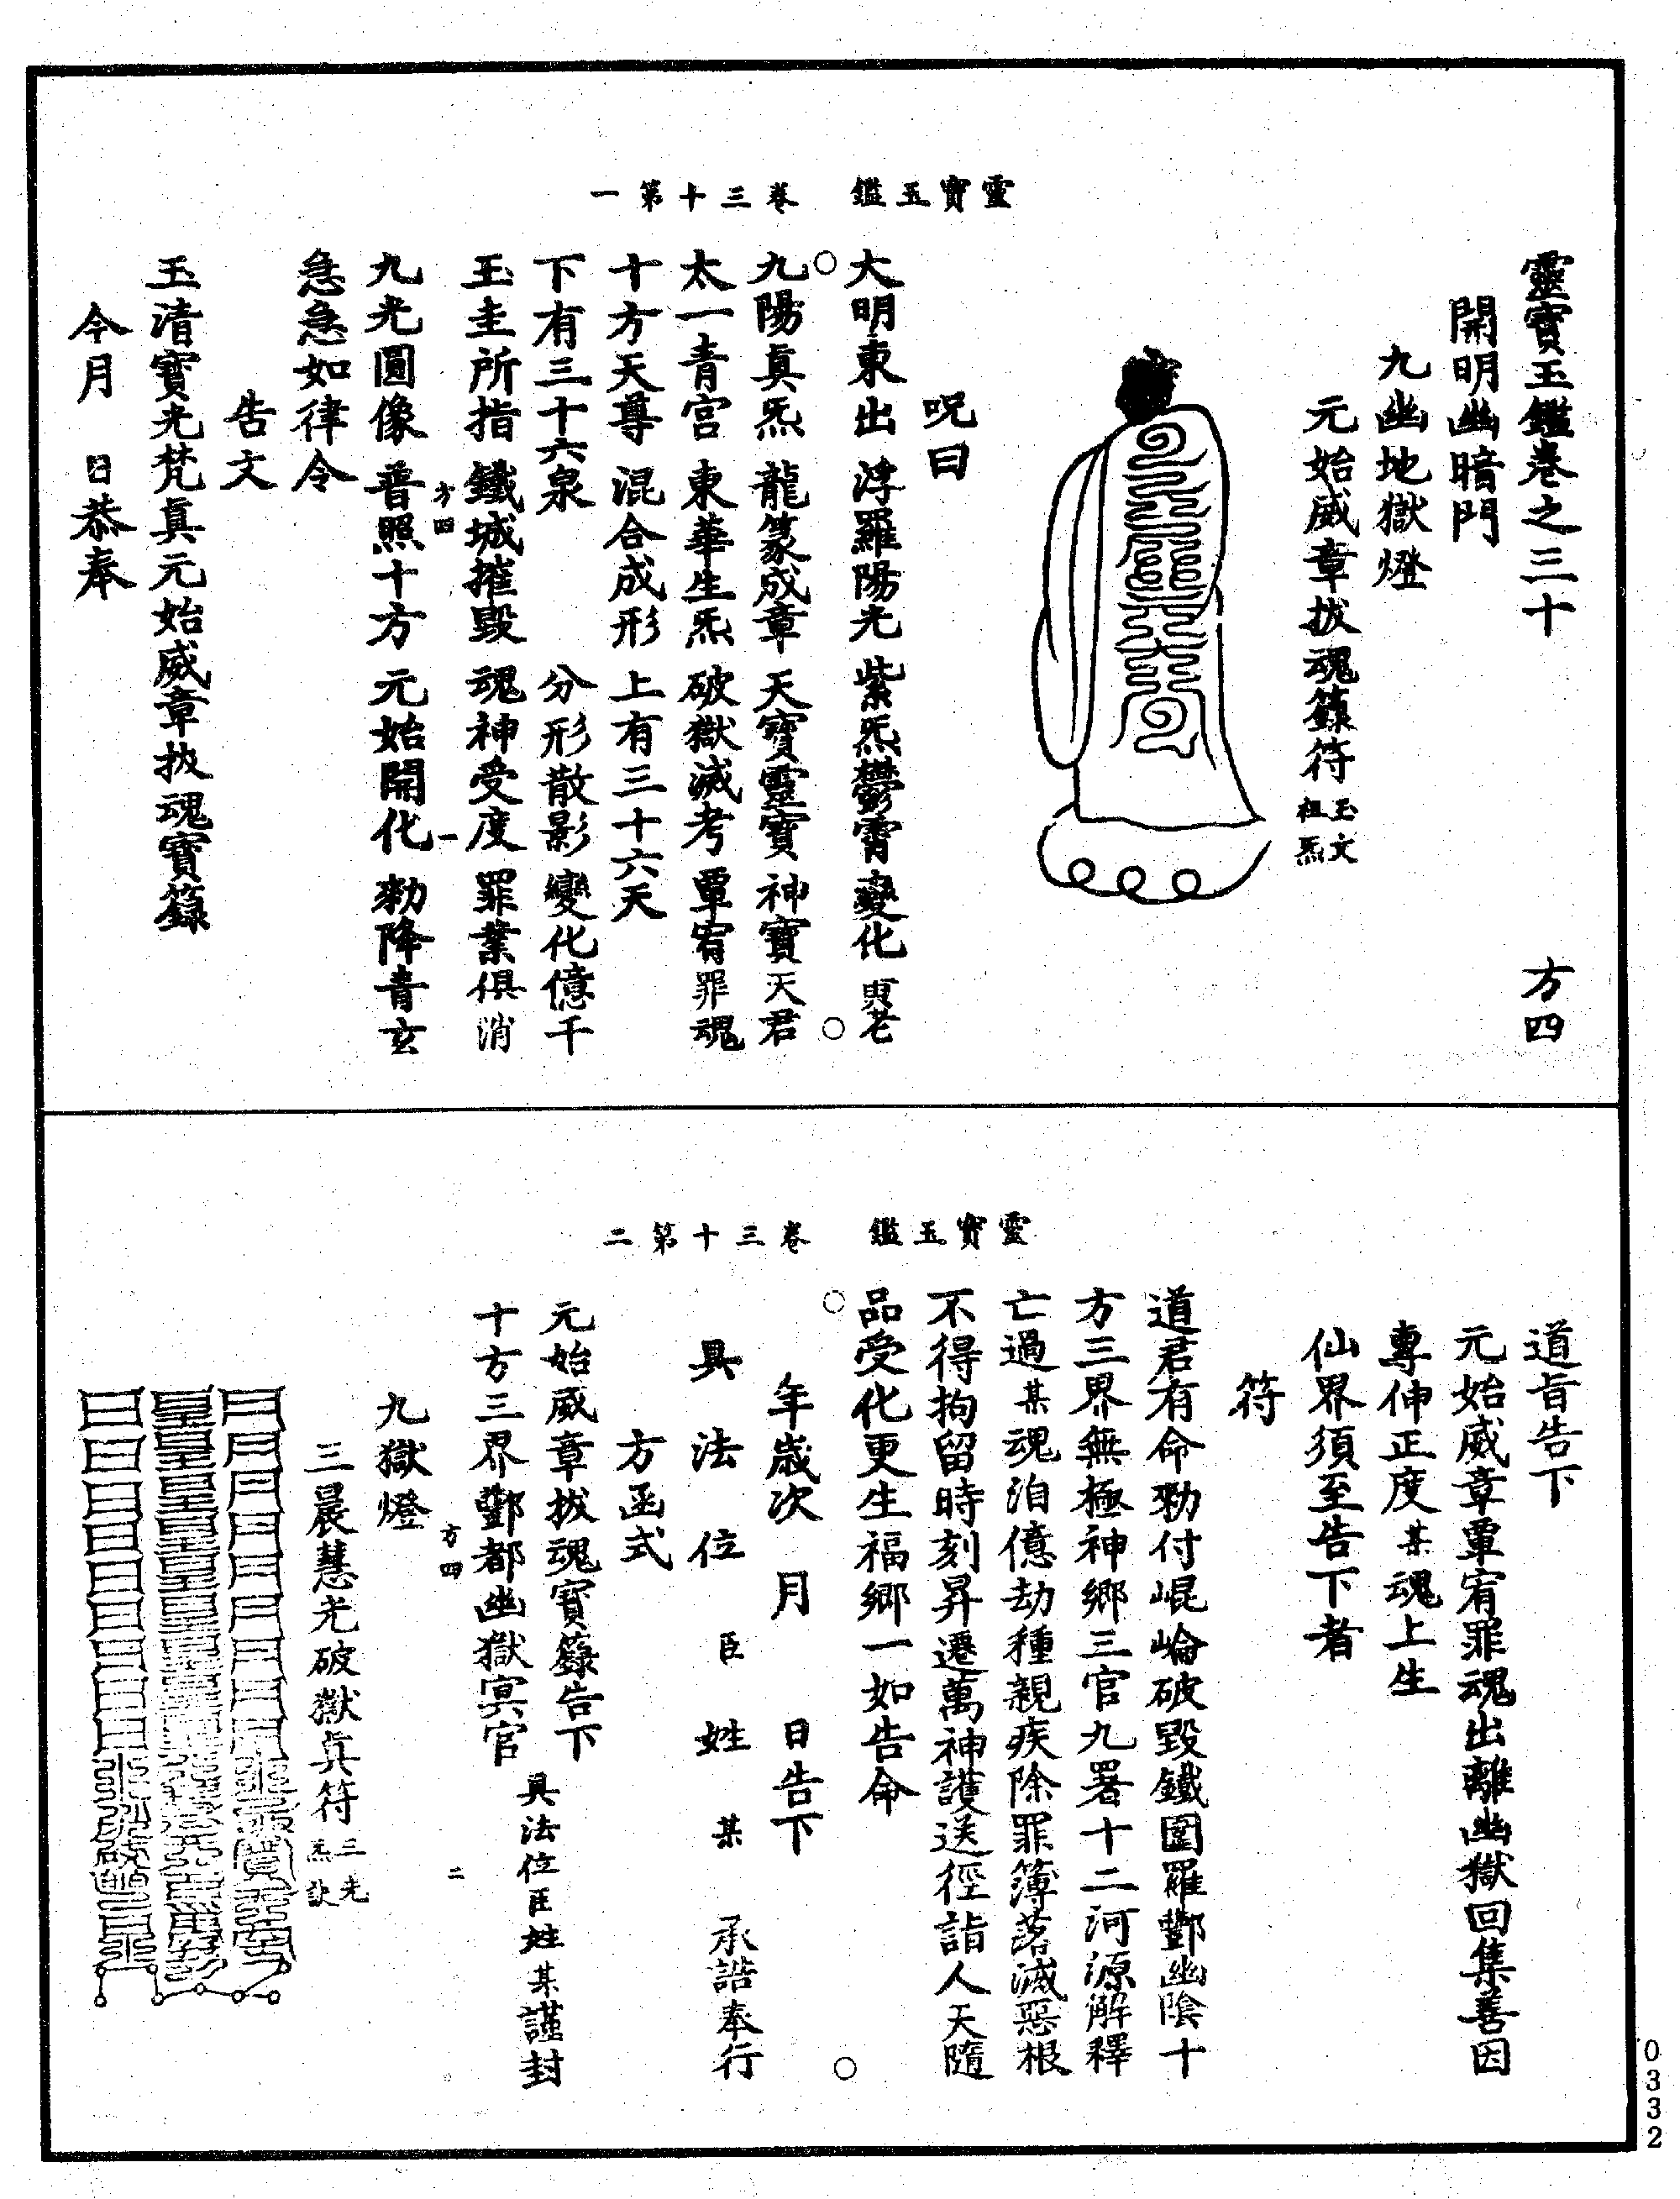 靈寶玉鑑 卷三十第一
靈寶玉鑑卷之三十 方四
開明幽暗門
九幽地獄燈
元始威章拔魂籙符 玉文祖炁
呪曰
大明東出 浮羅陽光 紫炁鬱霄 變化
九陽真炁 龍篆成章 天寶靈寶 神寶天君
太一青宮 東華生炁 破獄滅考 覃宥罪魂
十方天尊 混合成形 上有三十六天
下有三十六泉 分形散影 變化億千
玉圭所指 鐵城摧毀 魂神受度 罪業俱消
方四 一
九光圓像 普照十方 元始開化 勑降青玄
急急如律令
告文
玉清寶光梵真元始威章拔魂寶籙
今月 日恭奉
靈寶玉鑑 卷三十第二
道旨告下
元始威章覃宥罪魂出離幽獄回集善因
專伸正度某魂上生
仙界須至告下者
符
道君有命勑付崐崘破毀鐵圍羅酆幽陰十
方三界無極神鄉三官九署十二河源解釋
亡過某魂洎億劫種親疾除罪簿落滅惡根
不得拘留時刻昇遷萬神護送徑詣人天隨
品受化更生福鄉一如告命
年歲次 月 日告下
具法位臣姓某 承誥奉行
方函式
元始威章拔魂寶籙告下
十方三界酆都幽獄冥官
具法位臣姓某謹封
方四 二
九獄燈
三晨慧光破獄真符 三光炁訣
0332